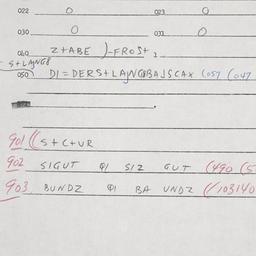 022 0 023 0
030 0 031 0
040 Z+ABE )-FROS+ 3
S+LANG8
050 DI=DERS+LAJN@BAJSCAX (057 (047
901 ((S+C+UR
902 SIGUT @1 SIZ GUT (490 (5
903 BUNDZ @1 BA UNDZ (/103140